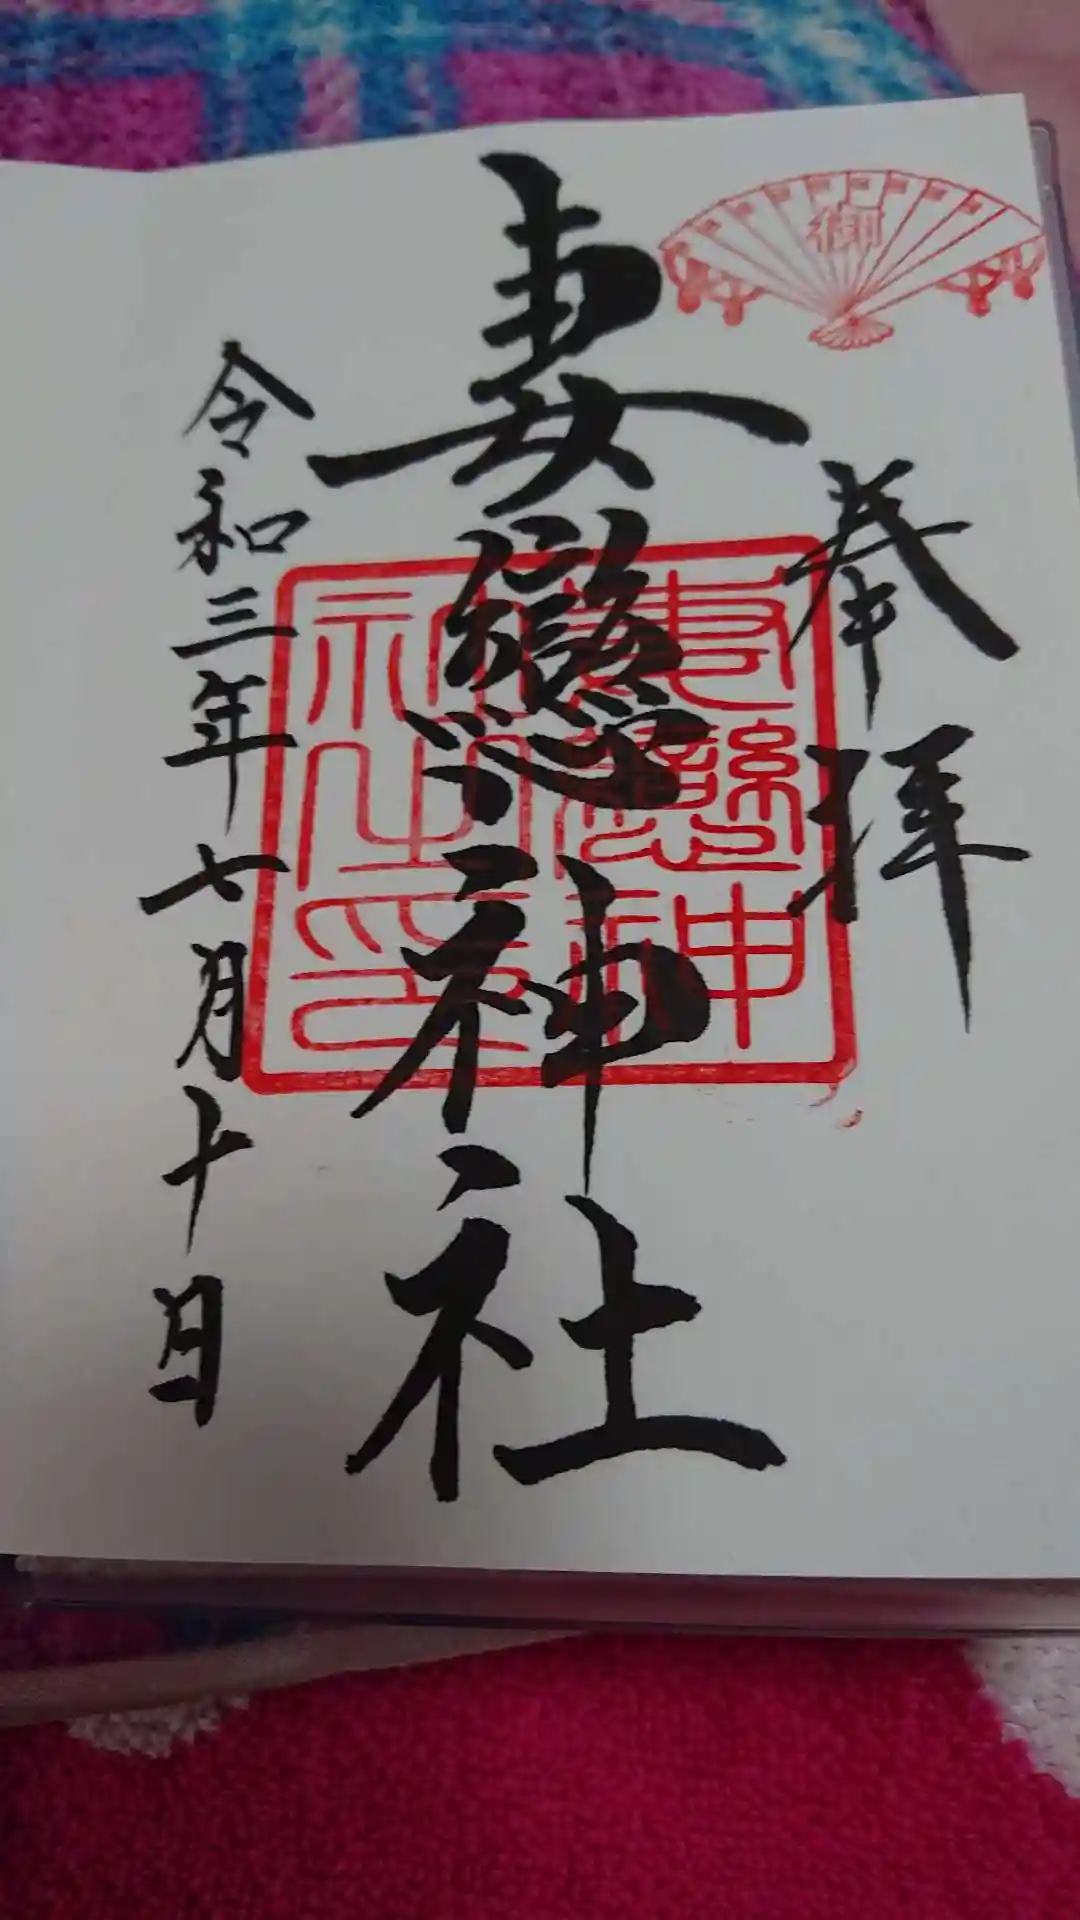 御
奉拝
妻戀神社
妻戀神
社之印
令和三年七月十日